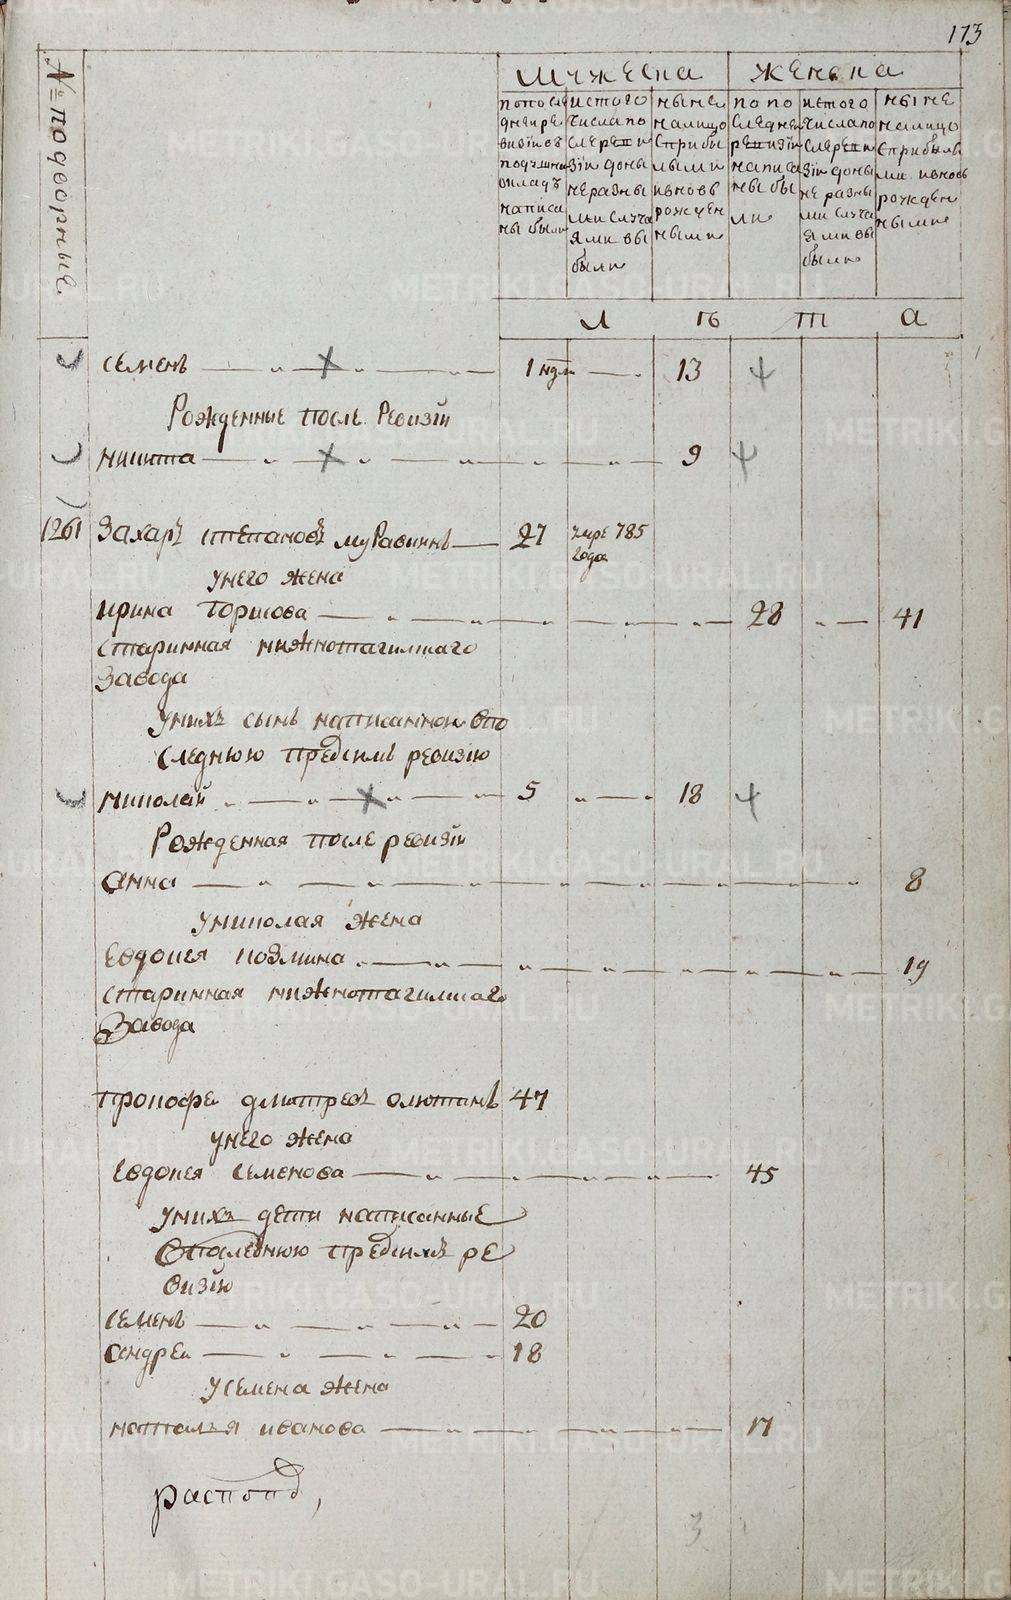 173
№ подворныя
мужеска
женска
попосле
днеи ре
визiи въ
подушны
окладъ
написа
ны были
истого
числапо
слереви
зiи доны
неразны
ми случа
ями вы
были
ныне
налицо
сприбы
лыми
ивновь
рожден
ными
попо
следнеи
ревизiи
написа
ны бы
ли
истого
числапо
слереви
зiи доны
не разны
ми случа
ями вы
были
ныне
налицо
сприбылы
ми ивновь
рожден
ными
л ѣ т а
семенъ 1 нди 13
Рожденные после Ревизiи
никита 9
1261 Захаръ степановъ муравинъ 27 умре 785
года
унего жена
ирина 28 41
старинная нижнотагилскаго
Завода
унихъ сынъ написанной впо
следнюю предсимъ ревизию
николай 5 18
Рожденная после ревизiи
анна 8
униколая жена
Евдокея козмина 19
старинная нижнотагилскаго
Завода
прокофеи дмитревъ олютинъ 47
унего жена
Евдокея семенова 45
унихъ дети написанные
впоследнюю предсимъ ре
визiю
семенъ 20
андреи 18
усемена жена
наталья иванова 17
3
METRIKI.GASO-URAL.RU